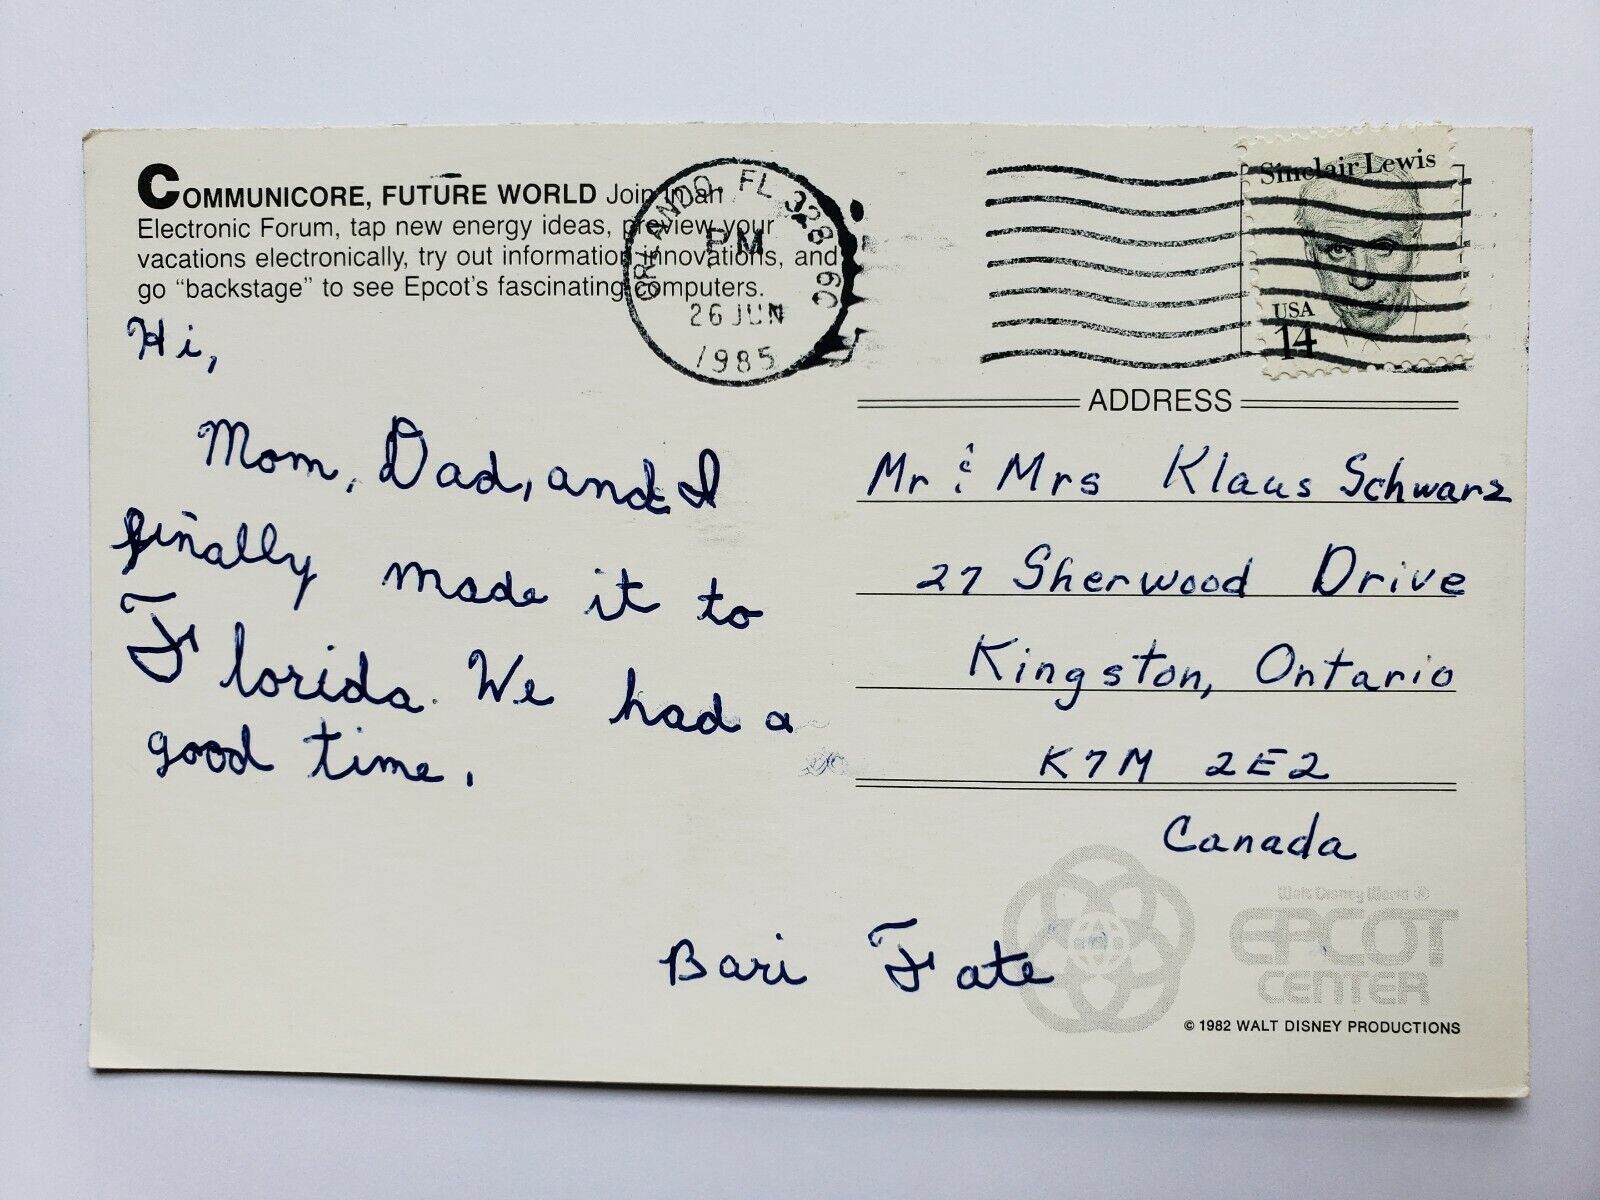 COMMUNICORE, FUTURE WORLD Join in an
Electronic Forum, tap new energy ideas, preview your
vacations electronically, try out information innovations, and
go “backstage” to see Epcot’s fascinating computers.
ORLANDO, FL 328
PM
26 JUN
1985
Sinclair Lewis
USA
14
Hi,
Mom, Dad, and I
finally made it to
Florida. We had a
good time.
Bari Fate
ADDRESS
Mr & Mrs Klaus Schwarz
27 Sherwood Drive
Kingston, Ontario
K7M 2E2
Canada
Walt Disney World ®
EPCOT
CENTER
© 1982 WALT DISNEY PRODUCTIONS